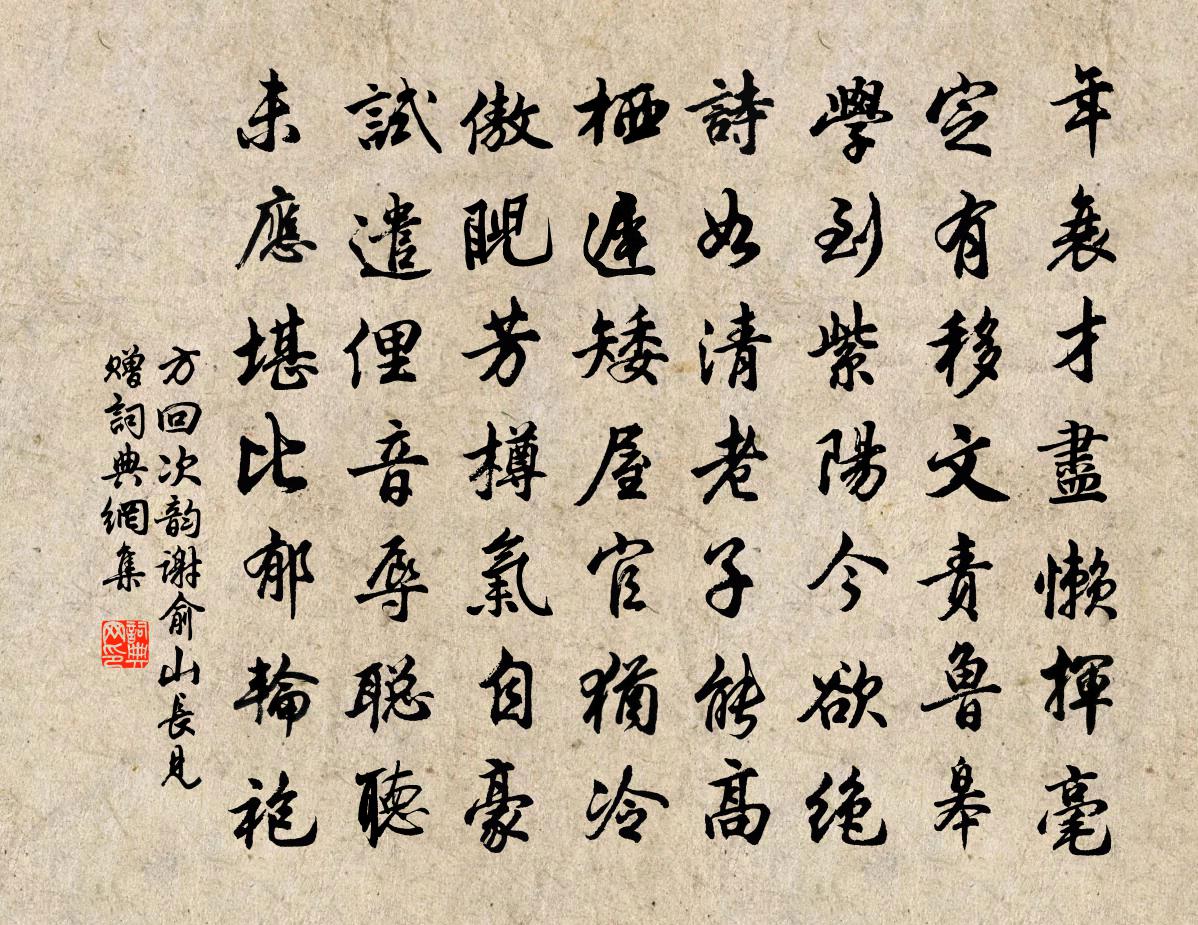 年衰才盡懶揮毫
定有移文責魯皋
學到紫陽今欲絶
詩如清老子能高
栖遲矮屋官猶冷
傲睨芳樽氣自豪
試遣俚音辱聡聽
未應堪比郁輪袍
方回次韵謝俞山長見
贈詞典網集
詞典网印